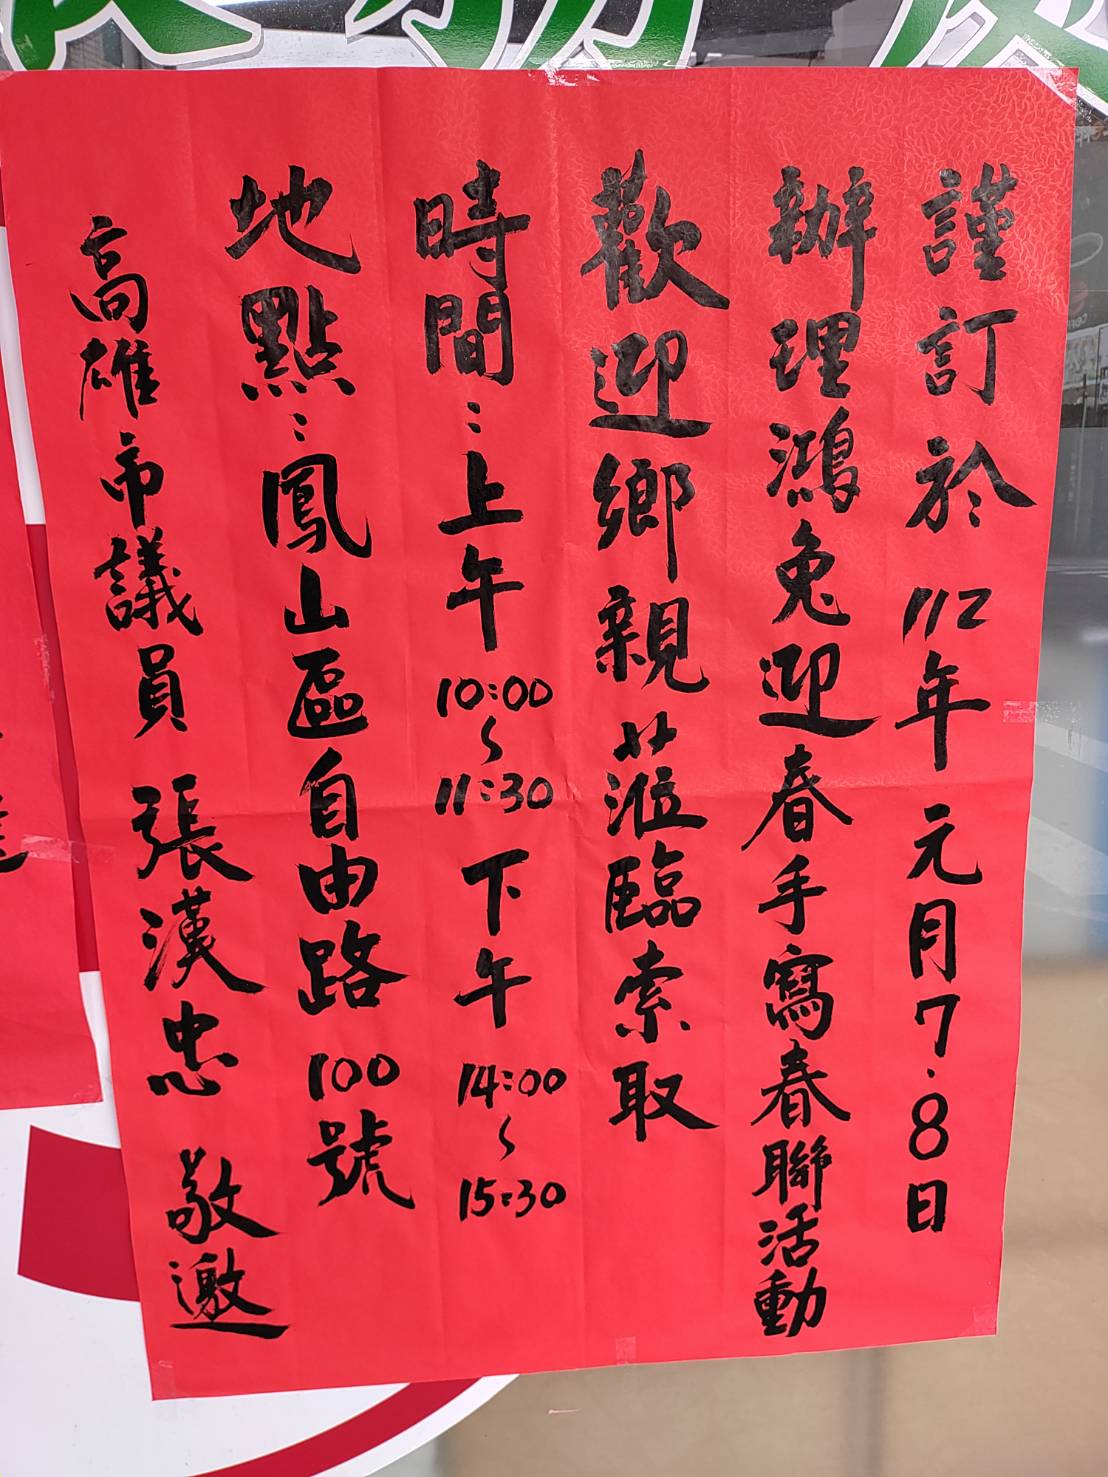 謹訂於112年元月7.8日
辦理鴻兔迎春手寫春聯活動
歡迎鄉親蒞臨索取
時間：上午10:00～11:30 下午14:00～15:30
地點：鳳山區自由路100號
高雄市議員 張漢忠 敬邀